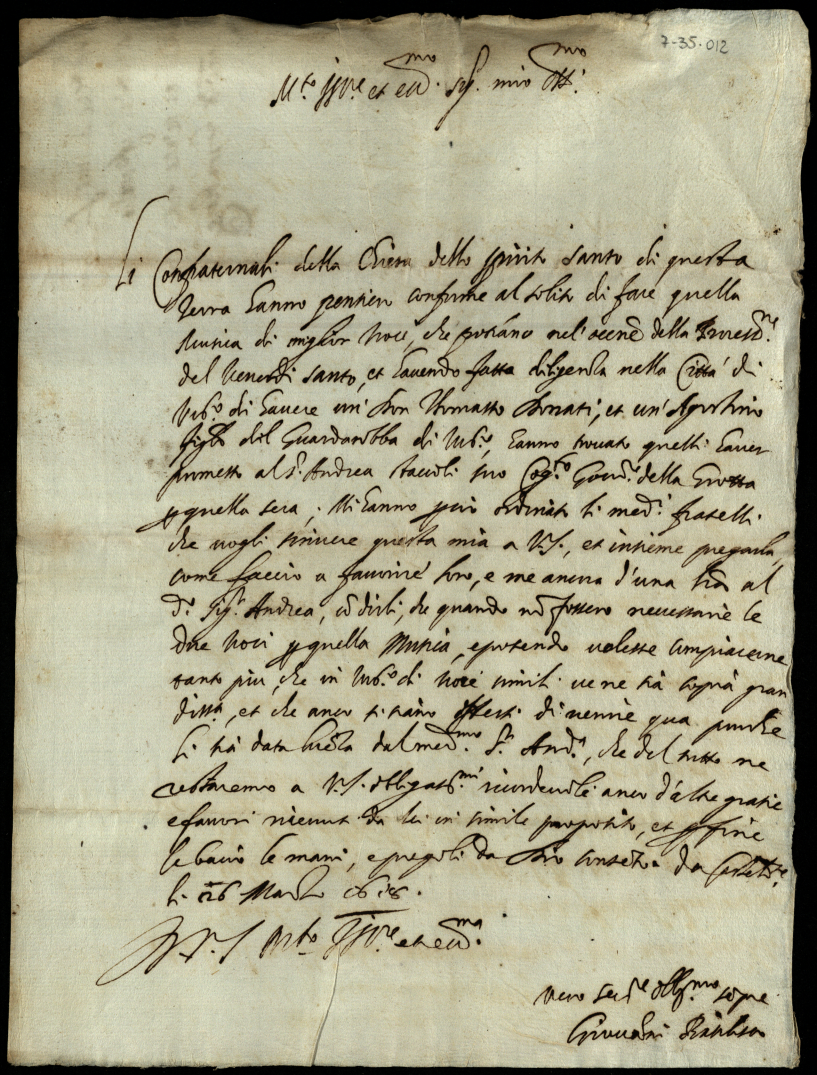 7-35-012
M.to Ill.re et ecc.mo Sig. mio oss.mo
Li Confraternali della Chiesa dello spirito santo di questa
Terra hanno pensiero conforme al solito di fare quella
Musica di miglior voci, che potrano nel della Process.ne
del Venerdi santo, et havendo fatta diligenza nella Città di
Urb.o di havere un' Don Thomasso, et un' Agostino
figlo del Guardarobba di Urb.o, hanno trovato quelli haver
promesso al S.r Andrea Staccoli suo Cog.to Gover.re della Grotta
p quella sera, Mi hanno però ordinato li med.i fratelli
che vogli scrivere questa mia a V.S., et insieme pregarla,
come faccio a favorire loro, e me ancora d'una l'ra al
d.o Sig.r Andrea, cõ dirli, che quando nõ fossero necessarie le
due voci p quella Musica, e potendo volesse compiacerne
tanto piu, che in Urb.o di voci simili ve ne sia copia gran
diss.a, et che anco si siano offerti di venire qua purche
li sia data licẽza dal med.mo S.r And.a, che del tutto ne
restaremo a V.S. obligatis.mi ricordevoli anco d'altre gratie
e favori ricevuti da lei in simile proposito, et p fine
le bacio le mani, e pregoli da Dio contẽto. da
li 26 Marzo 1618.
D. V. S. M.to Ill.re et ecc.ma
vero ser.re obblig.mo sepre
Giovanni